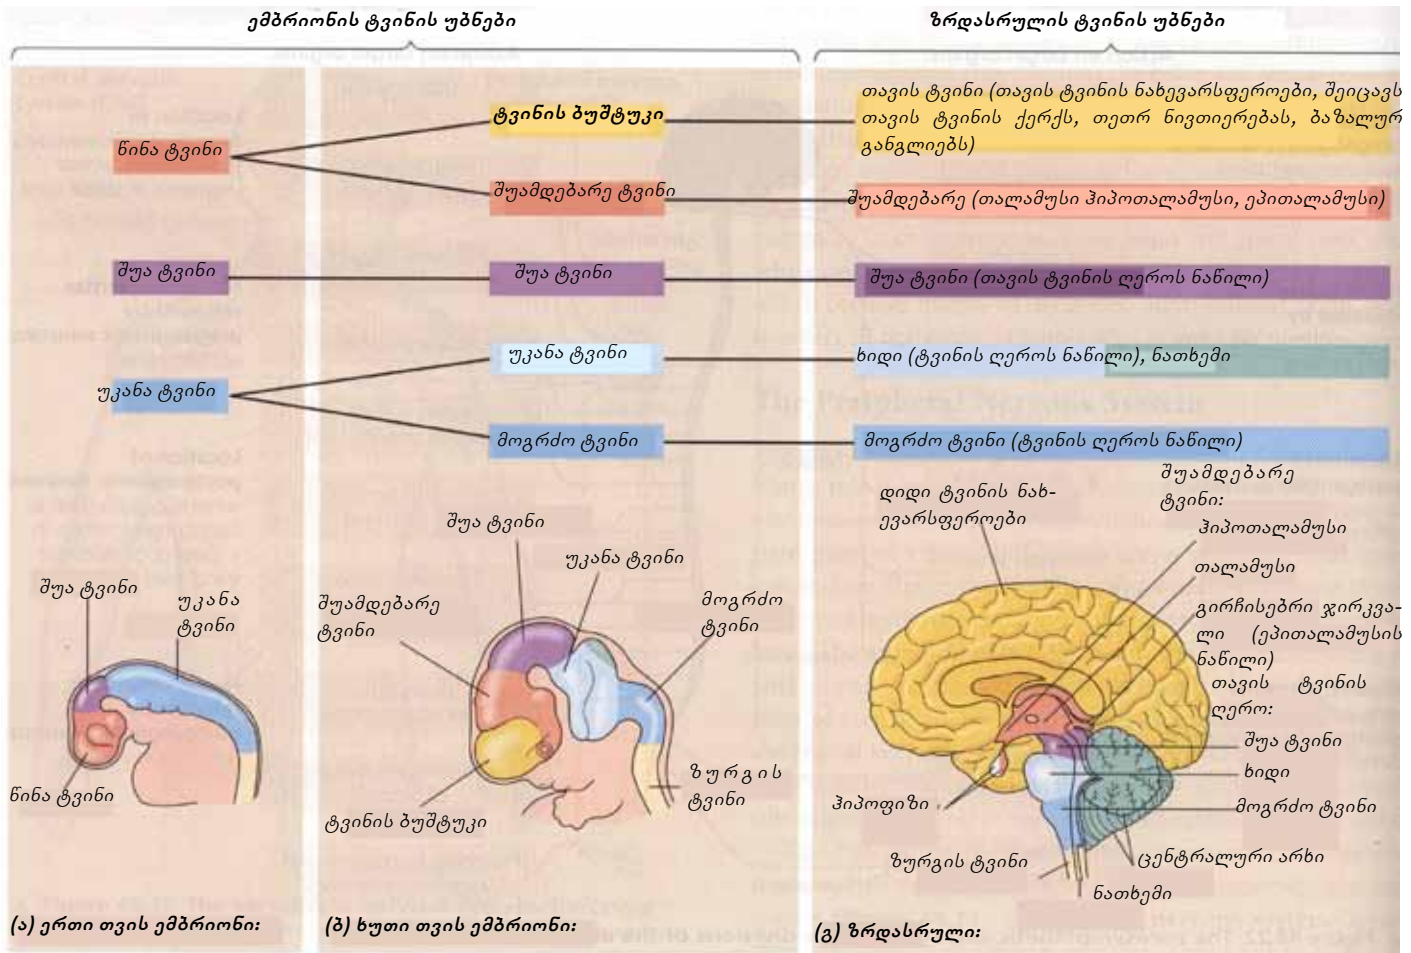 ემბრიონის ტვინის უბნები
ზრდასრულის ტვინის უბნები
წინა ტვინი
ტვინის ბუშტუკი
თავის ტვინი (თავის ტვინის ნახევარსფეროები, შეიცავს
თავის ტვინის ქერქს, თეთრ ნივთიერებას, ბაზალურ
განგლიებს)
შუამდებარე ტვინი
შუამდებარე (თალამუსი ჰიპოთალამუსი, ეპითალამუსი)
შუა ტვინი
შუა ტვინი
შუა ტვინი (თავის ტვინის ღეროს ნაწილი)
უკანა ტვინი
უკანა ტვინი
ხიდი (ტვინის ღეროს ნაწილი), ნათხემი
მოგრძო ტვინი
მოგრძო ტვინი (ტვინის ღეროს ნაწილი)
შუა ტვინი
უკანა
ტვინი
წინა ტვინი
(ა) ერთი თვის ემბრიონი:
შუა ტვინი
უკანა ტვინი
შუამდებარე
ტვინი
მოგრძო
ტვინი
ზურგის
ტვინი
ტვინის ბუშტუკი
(ბ) ხუთი თვის ემბრიონი:
დიდი ტვინის ნახ-
ევარსფეროები
შუამდებარე
ტვინი:
ჰიპოთალამუსი
თალამუსი
გირჩისებრი ჯირკვა-
ლი (ეპითალამუსის
ნაწილი)
თავის ტვინის
ღერო:
შუა ტვინი
ხიდი
მოგრძო ტვინი
ჰიპოფიზი
ზურგის ტვინი
ცენტრალური არხი
ნათხემი
(გ) ზრდასრული: